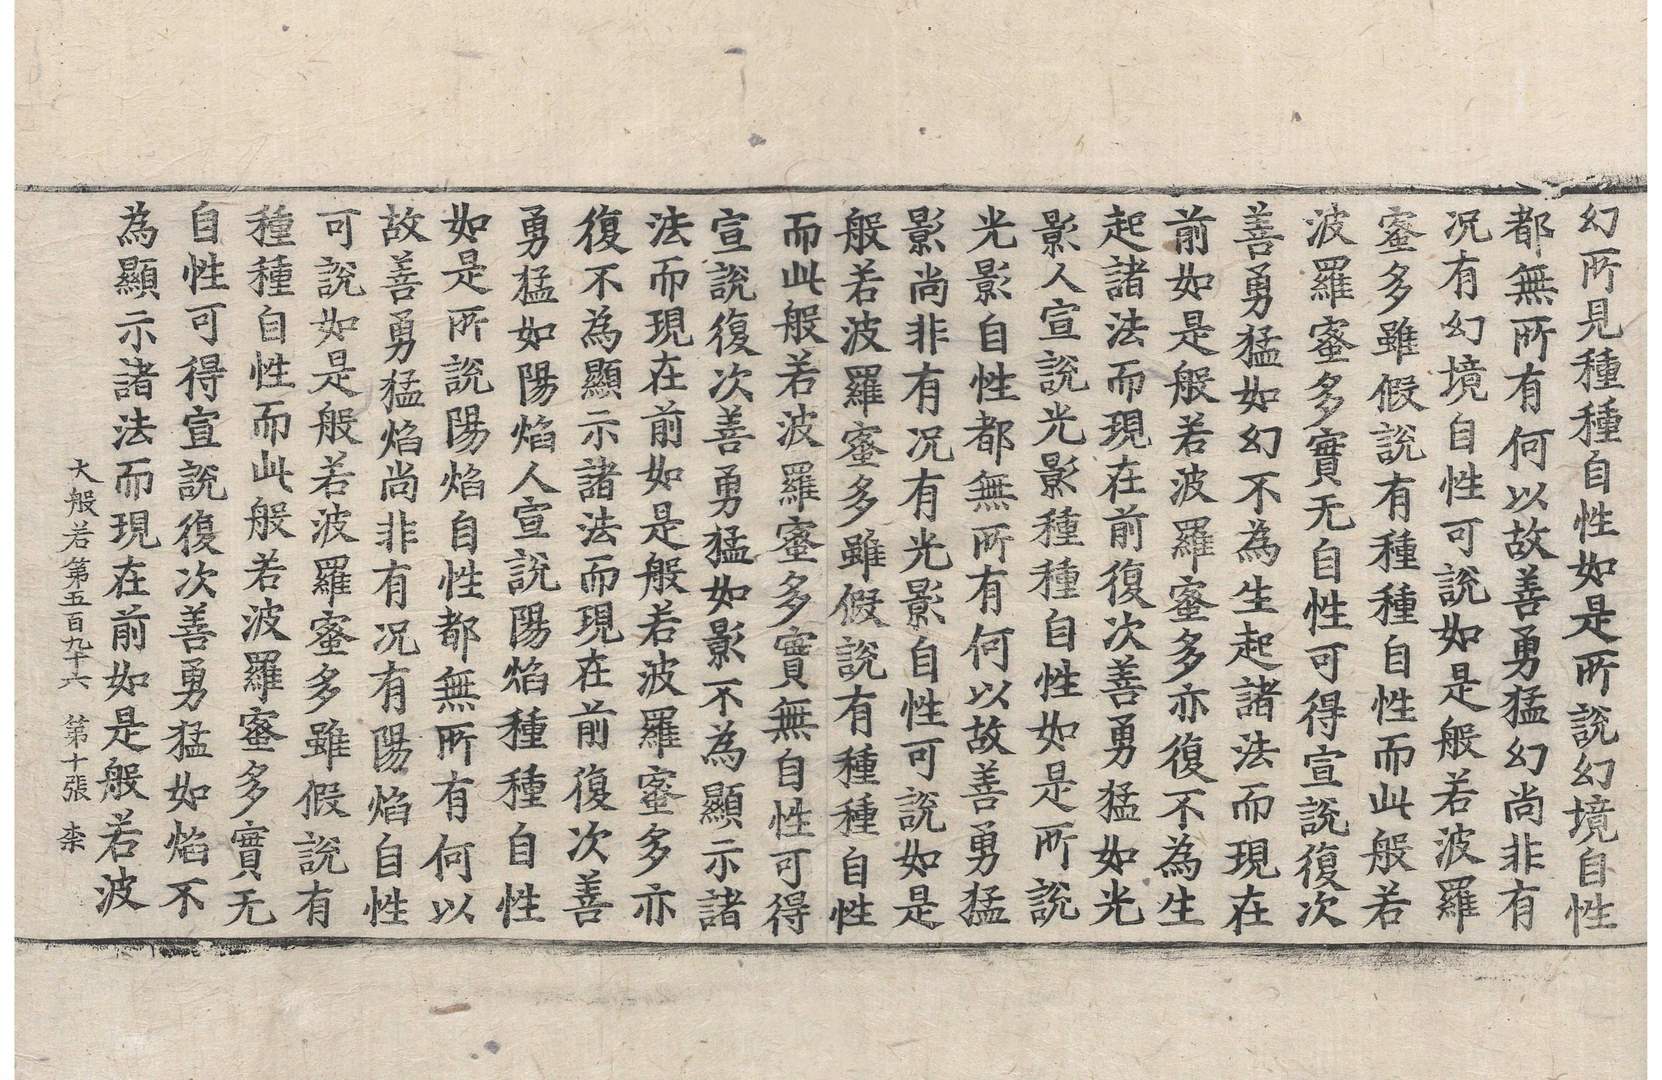 幻所見種種自性如是所說幻境自性
都無所有何以故善勇猛幻尚非有
况有幻境自性可說如是般若波羅
蜜多雖假說有種種自性而此般若
波羅蜜多實无自性可得宣說復次
善勇猛如幻不為生起諸法而現在
前如是般若波羅蜜多亦復不為生
起諸法而現在前復次善勇猛如光
影人宣說光影種種自性如是所說
光影自性都無所有何以故善勇猛
影尚非有况有光影自性可說如是
般若波羅蜜多雖假說有種種自性
而此般若波羅蜜多實無自性可得
宣說復次善勇猛如影不為顯示諸
法而現在前如是般若波羅蜜多亦
復不為顯示諸法而現在前復次善
勇猛如陽焰人宣說陽焰種種自性
如是所說陽焰自性都無所有何以
故善勇猛焰尚非有况有陽焰自性
可說如是般若波羅蜜多雖假說有
種種自性而此般若波羅蜜多實无
自性可得宣說復次善勇猛如焰不
為顯示諸法而現在前如是般若波
大般若第五百九十六 第十張 柰